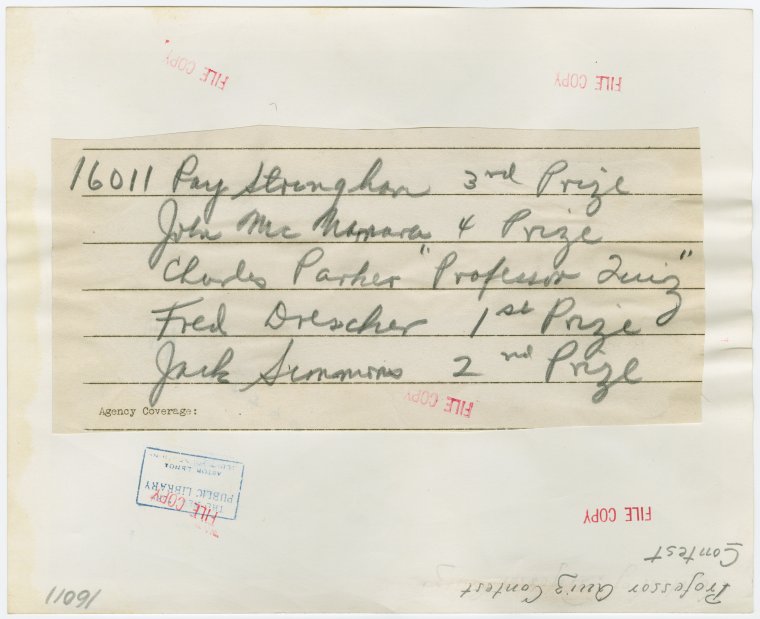 FILE COPY
FILE COPY
16011 Ray Stringham 3rd Prize
John Mc Namara 4 Prize
Charles Parker "Professor Quiz"
Fred Drescher 1st Prize
Jack Simmons 2nd Prize
Agency Coverage:
FILE COPY
PUBLIC LIBRARY
ASTOR LENOX
FILE COPY
FILE COPY
Professor Quiz Contest
Contest
16011